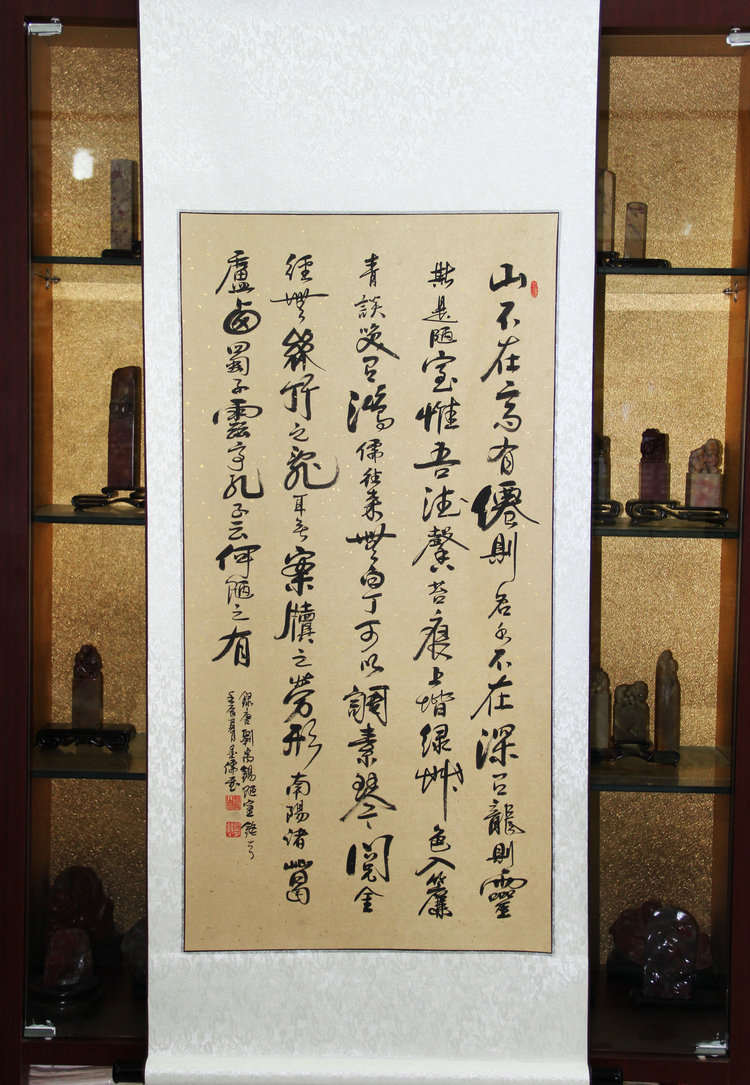 山不在高有僊則名水不在深有龍則靈
斯是陋室惟吾德馨苔痕上堦緑草色入簾
青談笑有鴻儒往來無白丁可以調素琴閱金
經無絲竹之亂耳無案牘之勞形南陽諸葛
廬西蜀子雲亭孔子云何陋之有
錄唐劉禹錫陋室銘一
壬辰夏月